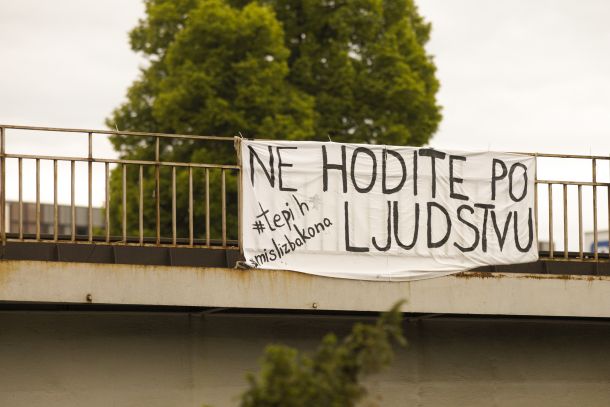 NE HODITE PO
LJUDSTVU
#tepih
#mislizbakona